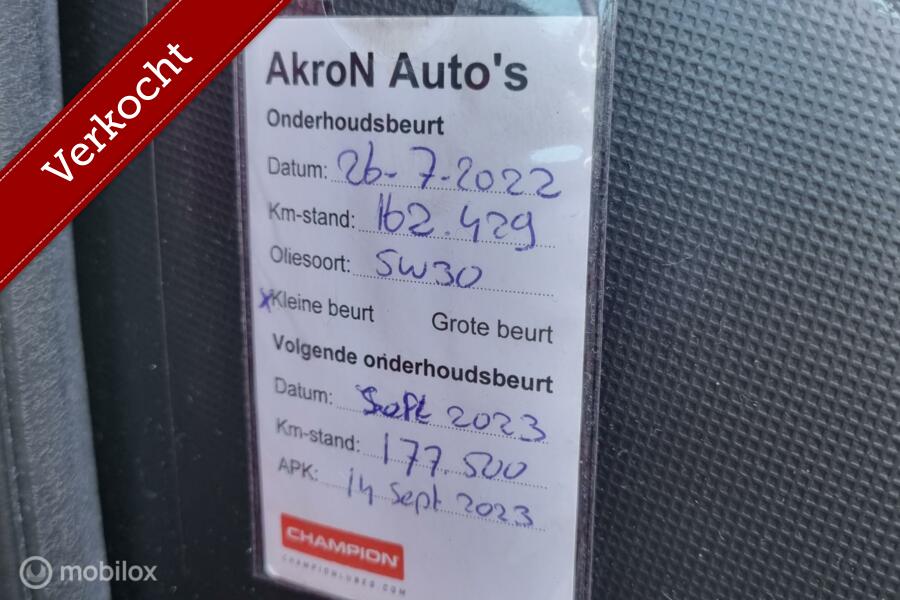 Verkocht
AkroN Auto's
Onderhoudsbeurt
Datum: 26-7-2022
Km-stand: 162.429
Oliesoort: 5W30
xKleine beurt Grote beurt
Volgende onderhoudsbeurt
Datum: Sept 2023
Km-stand: 177.500
APK: 14 Sept 2023
CHAMPION
CHAMPIONLUBES.COM
mobilox